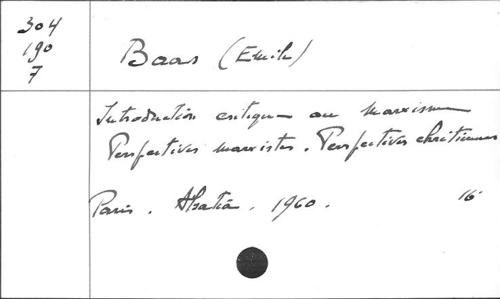 304
190
7
Baas (Emile)
Introduction critique au marxisme
Perspectives marxistes. Perspectives chrétiennes
Paris. Alsatia. 1960. 16°